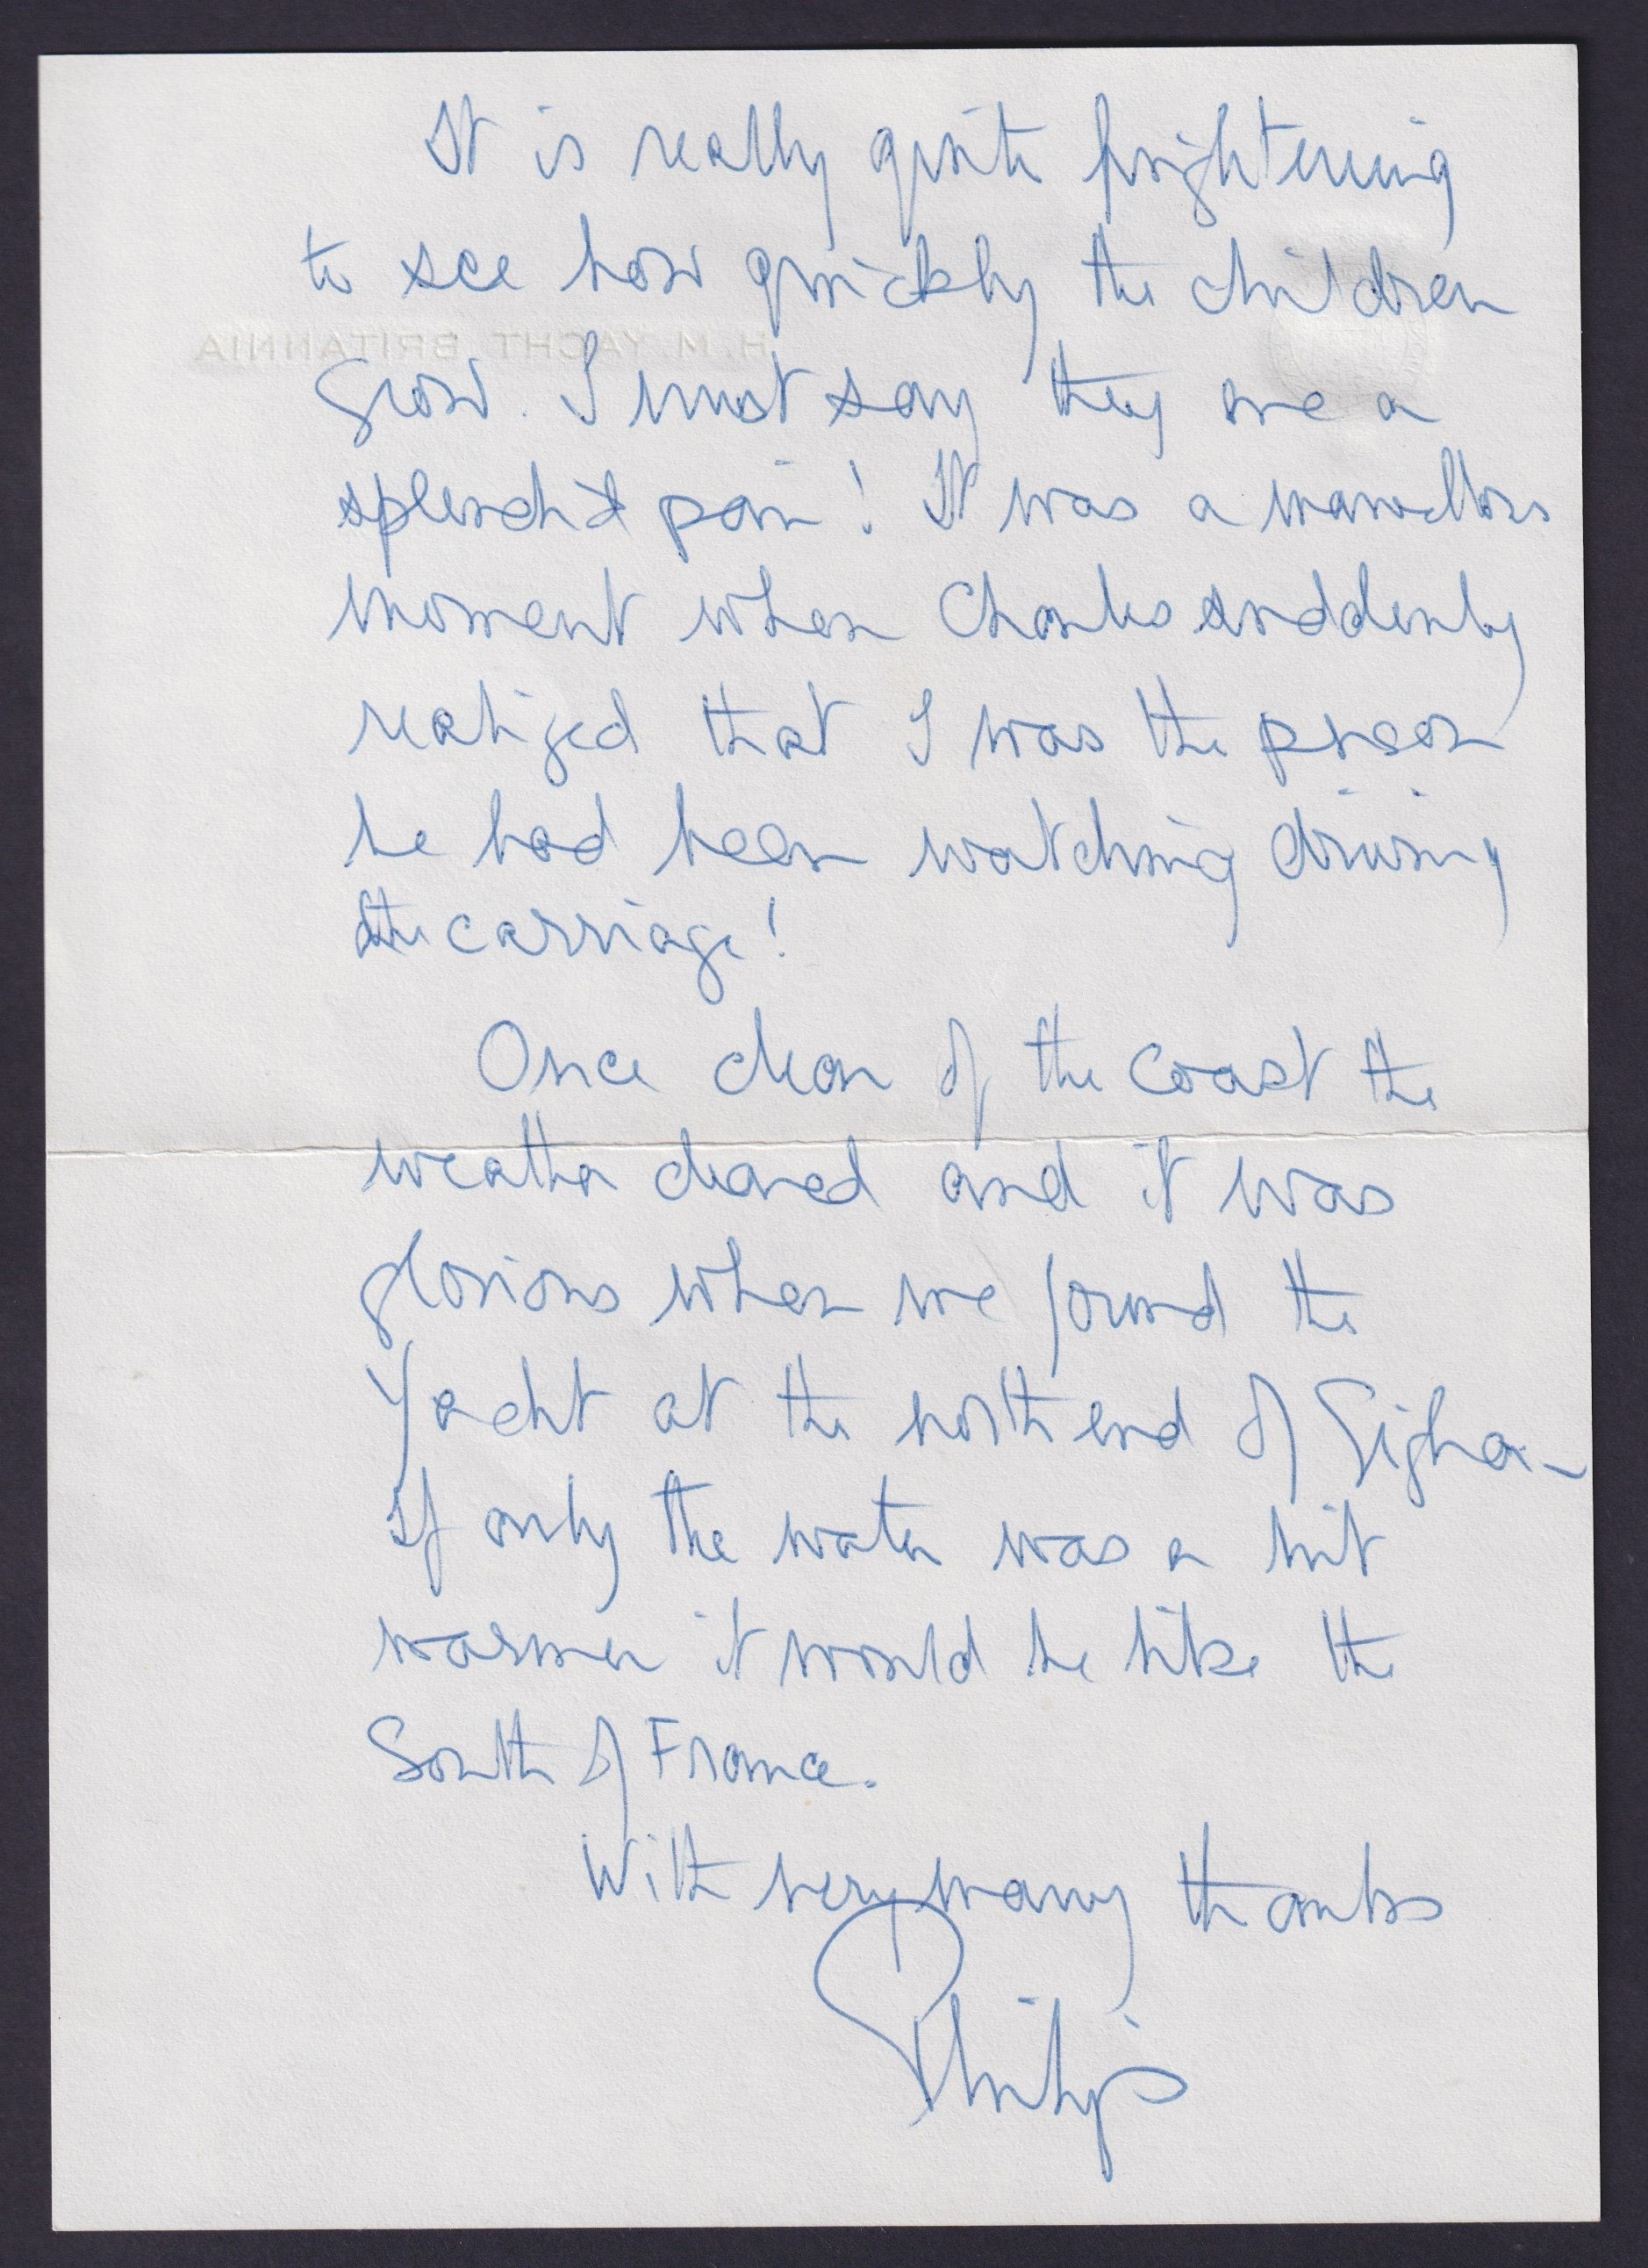 It is really quite frightening
to see how quickly the children
H. M. YACHT BRITANNIA
grow. I must say they are a
splendid pair! It was a marvellous
moment when Charles suddenly
realized that I was the person
he had been watching driving
the carriage!
Once clear of the coast the
weather cleared and it was
glorious when we found the
Yacht at the north end of Gigha.
If only the water was a bit
warmer it would be like the
South of France.
With very many thanks
Philip